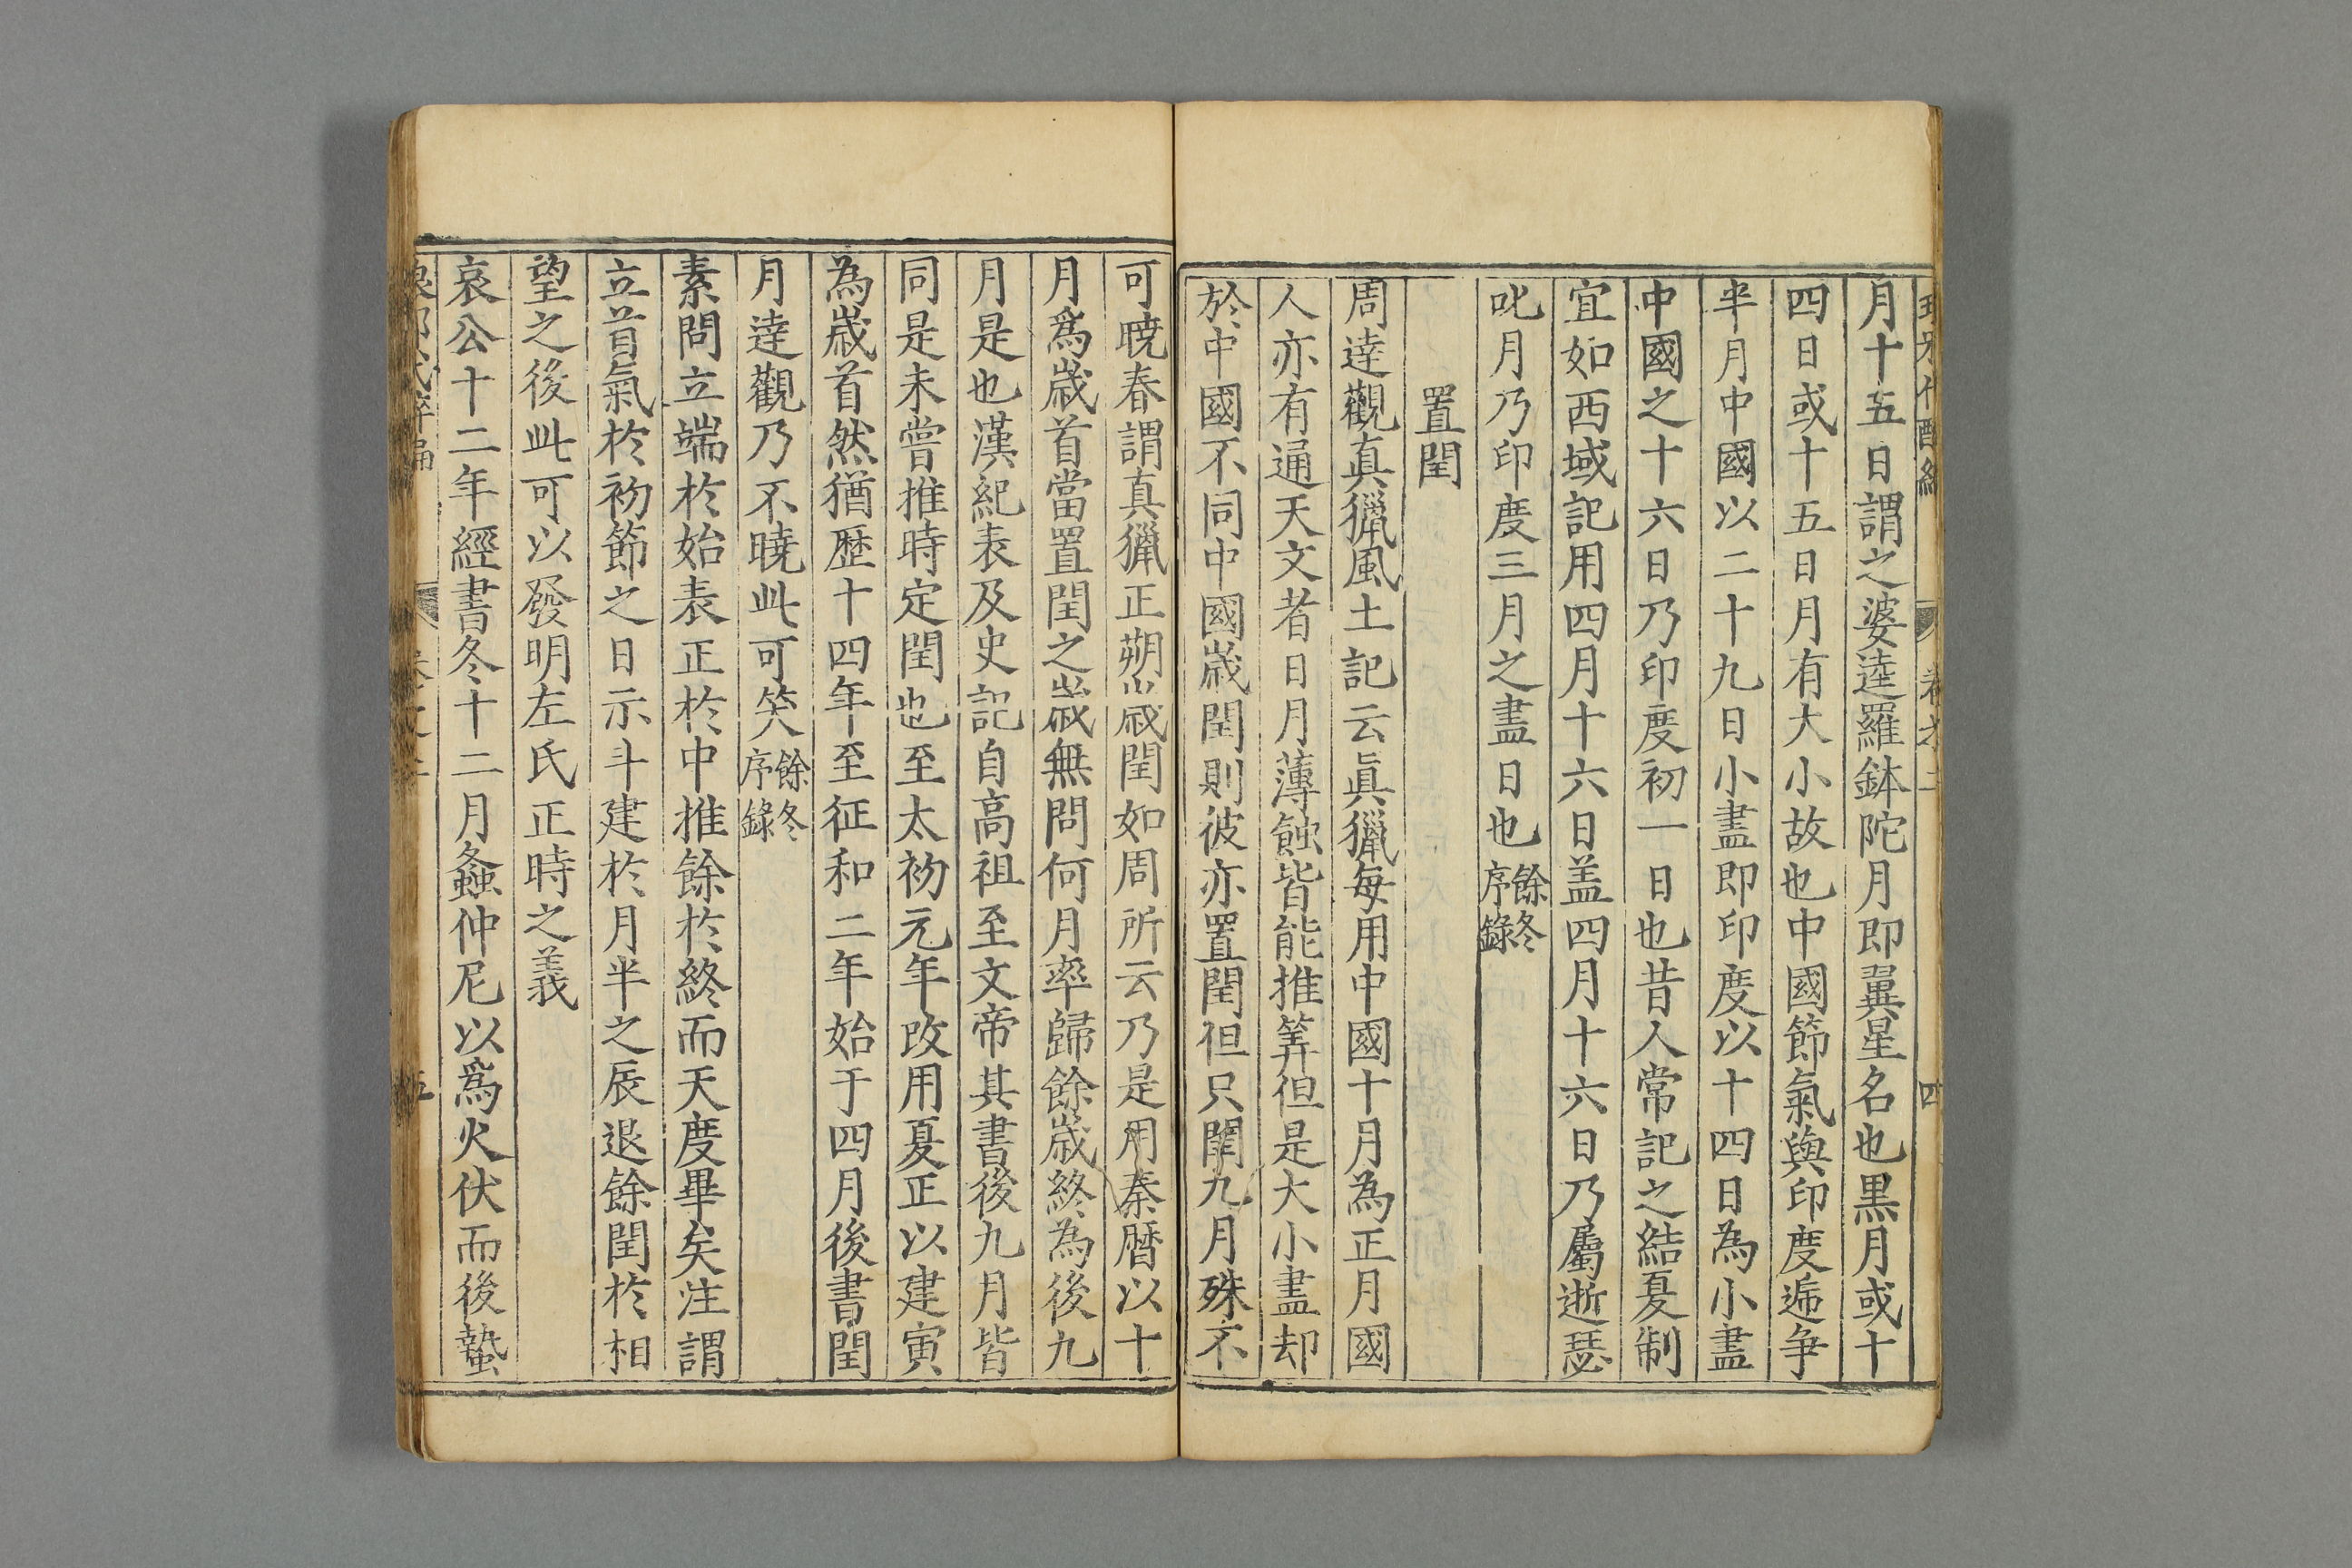 月十五日謂之婆逵羅鉢陀月即翼星名也黒月或十
四日或十五日月有大小故也中國節氣與印度遞争
半月中國以二十九日小盡即印度以十四日為小盡
中國之十六日乃印度初一日也昔人常記之結夏制
宜如西域記用四月十六日盖四月十六日乃屬逝瑟
吒月乃印度三月之盡日也餘冬序錄
置閏
周逹觀真獵風土記云真獵每用中國十月為正月國
人亦有通天文者日月薄蝕皆能推筭但是大小盡却
於中國不同中國歲閏則彼亦置閏但只閏九月殊不
可曉春謂真獵正朔歲閏如周所云乃是用秦曆以十
月爲歲首當置閏之歲無問何月率歸餘歲終為後九
月是也漢紀表及史記自高祖至文帝其書後九月皆
同是未嘗推時定閏也至太初元年改用夏正以建寅
為歲首然猶歷十四年至征和二年始于四月後書閏
月逹觀乃不曉此可笑餘冬序錄
素問立端於始表正於中推餘於終而天度畢矣注謂
立首氣於初節之日示斗建於月半之辰退餘閏於相
望之後此可以發明左氏正時之義
哀公十二年經書冬十二月螽仲尼以爲火伏而後蟄
五